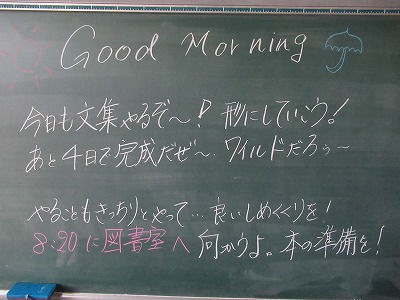 Good Morning
今日も文集やるぞ〜!! 形にしていこう!
あと4日で完成だぜ〜. ワイルドだろぅ〜
やることもきっちりとやって… 良いしめくくりを!
8:20に図書室へ 何かうよ。本の準備を!